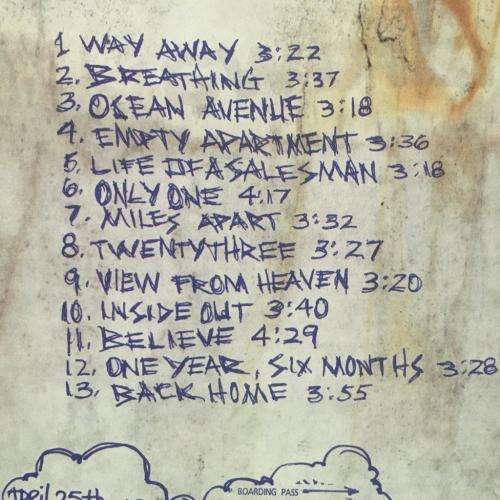 1 WAY AWAY 3:22
2. BREATHING 3:37
3. OCEAN AVENUE 3:18
4. EMPTY APARTMENT 3:36
5. LIFE OF A SALESMAN 3:18
6. ONLY ONE 4:17
7. MILES APART 3:32
8. TWENTYTHREE 3:27
9. VIEW FROM HEAVEN 3:20
10. INSIDE OUT 3:40
11. BELIEVE 4:29
12. ONE YEAR, SIX MONTHS 3:28
13. BACK HOME 3:55
April 25th
BOARDING PASS